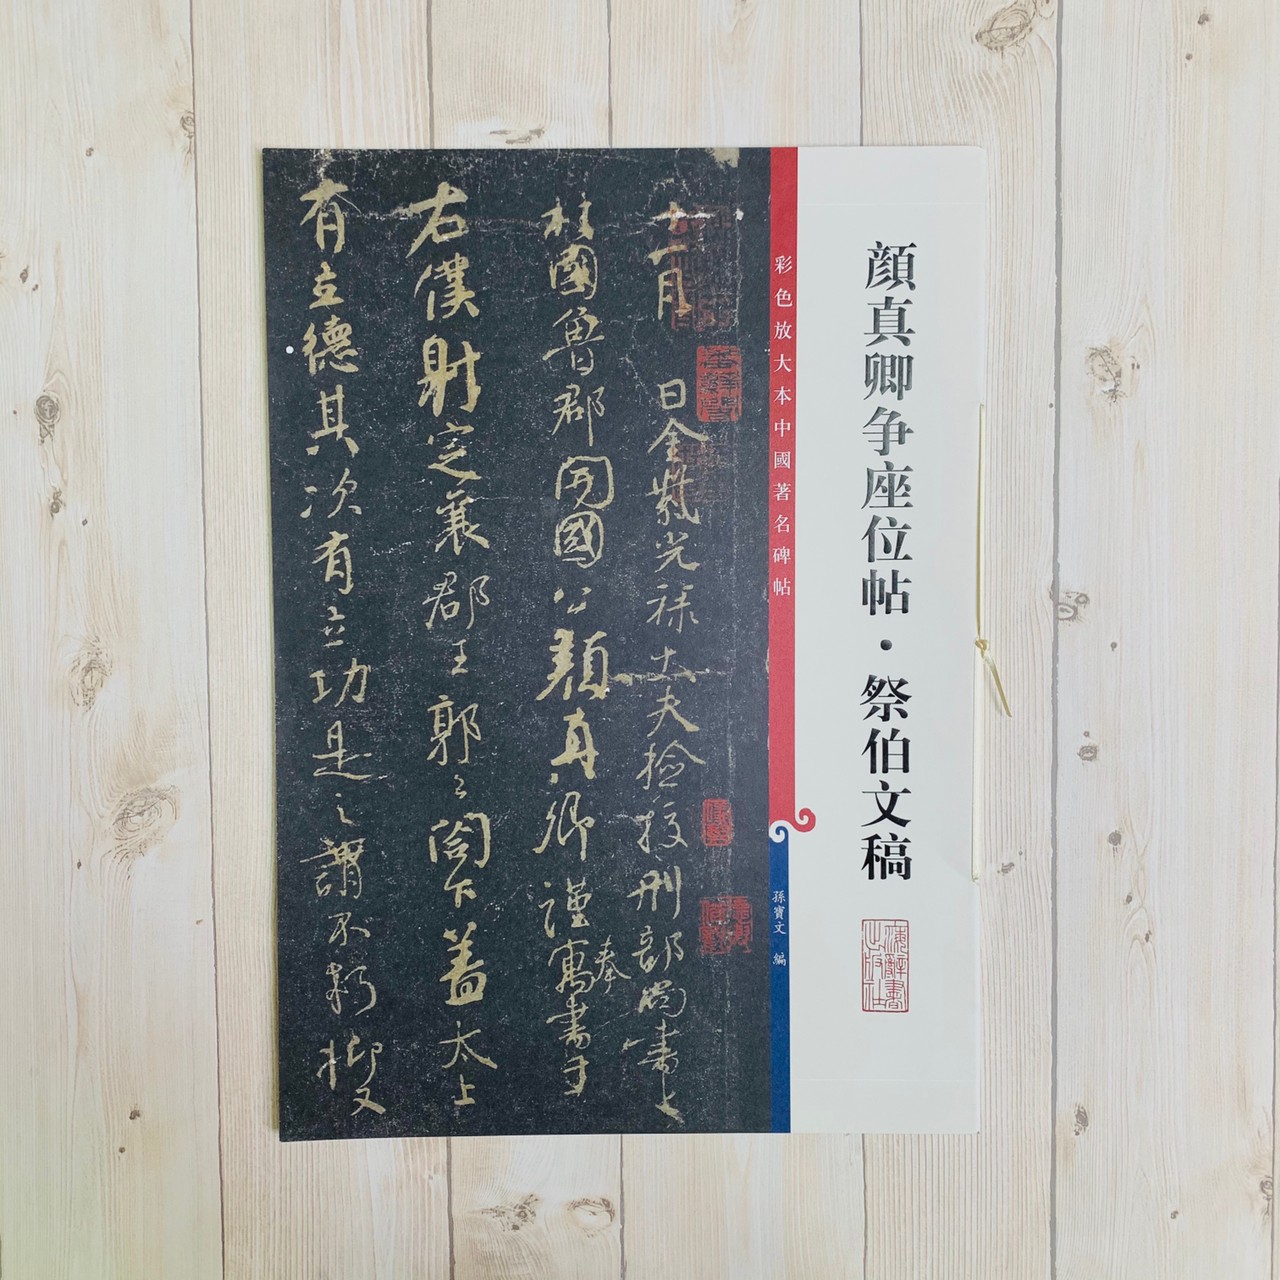 顔真卿争座位帖・祭伯文稿
海辭書出版社
彩色放大本中國著名碑帖
孫寶文 編
十一月 日金紫光禄大夫撿挍刑部尚書上
柱國魯郡開國公顔真卿謹奉寓書于
右僕射定襄郡王郭公閤下蓋太上
有立德其次有立功是之謂不朽抑又